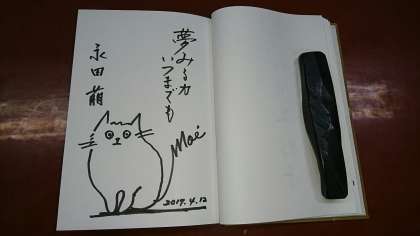 夢みる力
いつまでも
永田萠
Moé
2017.4.12